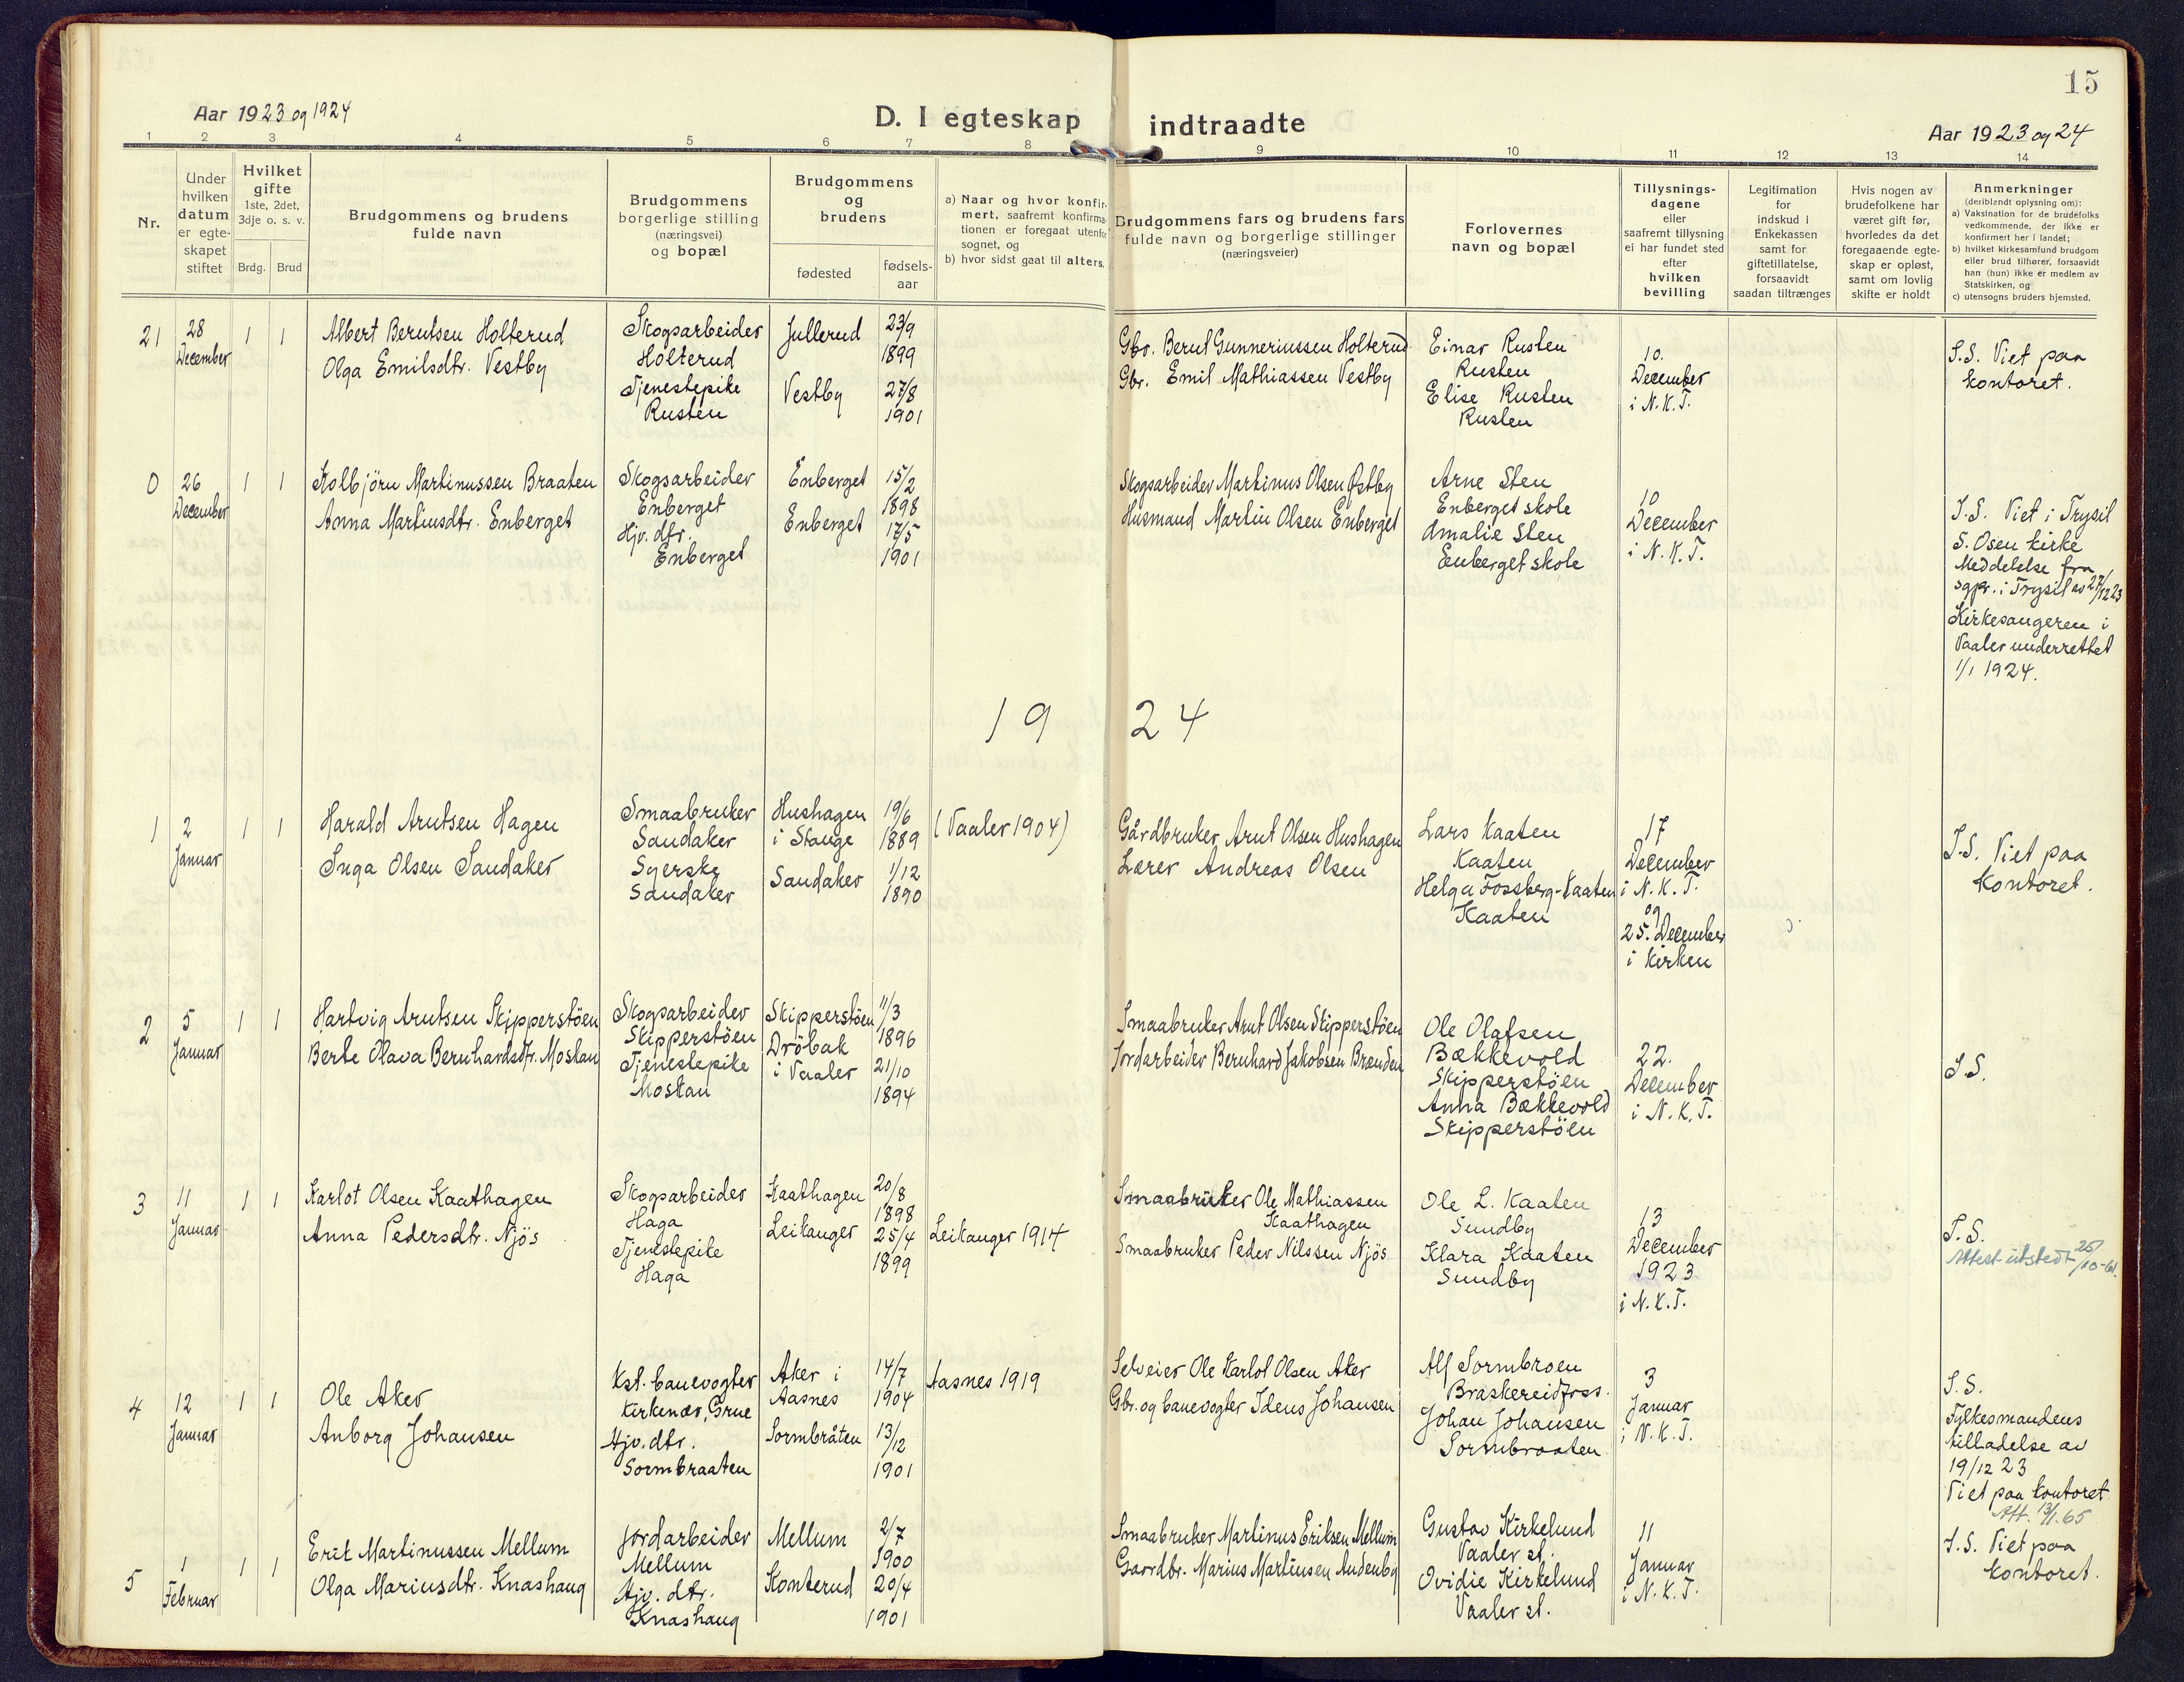 15
Aar 1923 og 1924
D. I egteskap indtraadte
Aar 1923 og 24
1 2 3 4 5 6 7 8 9 10 11 12 13 14
Nr.
Under
hvilken
datum
er egte-
skapet
stiftet
Hvilket
gifte
1ste, 2det,
3dje o. s. v.
Brdg. Brud
Brudgommens og brudens
fulde navn
Brudgommens
borgerlige stilling
(næringsvei)
og bopæl
Brudgommens
og
brudens
fødested
fødsels-
aar
a) Naar og hvor konfir-
mert, saafremt konfirma-
tionen er foregaat utenfor
sognet, og
b) hvor sidst gaat til alters.
Brudgommens fars og brudens fars
fulde navn og borgerlige stillinger
(næringsveier)
Forlovernes
navn og bopæl
Tillysnings-
dagene
eller
saafremt tillysning
ei har fundet sted
efter
hvilken
bevilling
Legitimation
for
indskud i
Enkekassen
samt for
giftetillatelse,
forsaavidt
saadan tiltrænges
Hvis nogen av
brudefolkene har
været gift før,
hvorledes da det
foregaaende egte-
skap er opløst,
samt om lovlig
skifte er holdt
Anmerkninger
(deriblandt oplysning om):
a) Vaksination for de brudefolks
vedkommende, der ikke er
konfirmert her i landet;
b) hvilket kirkesamfund brudgom
eller brud tilhører, forsaavidt
han (hun) ikke er medlem av
Statskirken, og
c) utensogns bruders hjemsted.
21
28
December
1 1
Albert Berntsen Holterud
Olga Emilsdtr. Vestby
Skogsarbeider
Holterud
Tjenestepike
Rusten
Jullerud
Vestby
23/9
1899
27/8
1901
Gbr. Bernt Gunneriussen Holterud
Gbr. Emil Mathiassen Vestby
Einar Rusten
Rusten
Elise Rusten
Rusten
10.
December
i N.K.T.
S.S. Viet paa
kontoret.
0
26
December
1 1
Kolbjörn Martinussen Braaten
Anna Martinsdtr. Enberget
Skogsarbeider
Enberget
Hjv. dtr.
Enberget
Enberget
Enberget
15/2
1898
17/5
1901
Skogsarbeider Martinus Olsen Østby
Husmand Martin Olsen Enberget
Arne Sten
Enberget skole
Amalie Sten
Enberget skole
10
December
i N.K.T.
S.S. Viet i Trysil
S. Osen kirke
Meddelelse fra
sgpr. i Trysil av 27/12 23
Kirkesangeren i
Vaaler underrettet
1/1 1924.
1924
1
2
Januar
1 1
Harald Arntsen Hagen
Inga Olsen Sandaker
Smaabruker
Sandaker
Syerske
Sandaker
Hushagen
i Stange
Sandaker
19/6
1889
1/12
1890
(Vaaler 1904)
Gårdbruker Arnt Olsen Hushagen
Lærer Andreas Olsen
Lars Kaaten
Kaaten
Helga Fossberg-Kaaten
Kaaten
17
December
i N.K.T.
og
25. December
i kirken
S.S. Viet paa
kontoret.
2
5
Januar
1 1
Hartvig Arntsen Skipperstöen
Berte Olava Bernhardsdtr. Mostau
Skogsarbeider
Skipperstöen
Tjenestepike
Mostau
Skipperstöen
Dröbak
i Vaaler
11/3
1896
21/10
1894
Smaabruker Arnt Olsen Skipperstöen
Jordarbeider Bernhard Jakobsen Brænden
Ole Olafsen
Bækkevold
Skipperstöen
Anna Bækkevold
Skipperstöen
22.
December
i N.K.T.
S.S.
3
11
Januar
1 1
Karlot Olsen Kaathagen
Anna Pedersdtr. Njös
Skogsarbeider
Haga
Tjenestepike
Haga
Kaathagen
Leikanger
20/8
1898
25/4
1899
Leikanger 1914
Smaabruker Ole Mathiassen
Kaathagen
Smaabruker Peder Nilssen Njös
Ole L. Kaaten
Sundby
Klara Kaaten
Sundby
13
December
1923
i N.K.T.
S.S.
Attest utstedt 25/10-61.
4
12
Januar
1 1
Ole Aker
Anborg Johansen
Kst. banevogter
Kirkenær, Grue
Hjv. dtr.
Sormbraaten
Aker i
Aasnes
Sormbråten
14/7
1904
13/12
1901
Aasnes 1919
Selveier Ole Karlot Olsen Aker
Gbr. og banevogter Idens Johansen
Alf Sormbroen
Braskereidfoss.
Johan Johansen
Sormbraaten
3
Januar
i N.K.T.
S.S.
Fylkesmandens
tilladelse av
19/12 23
Viet paa kontoret
Att. 13/1.65
5
1
Februar
1 1
Erik Martinussen Mellum
Olga Mariusdtr. Knashaug
Jordarbeider
Mellum
Hjv. dtr.
Knashaug
Mellum
Konterud
2/7
1900
20/4
1901
Smaabruker Martinus Eriksen Mellum
Gaardbr. Marius Martinsen Audenby
Gustav Kirkelund
Vaaler st.
Ovidie Kirkelund
Vaaler st.
11
Januar
i N.K.T.
S.S. Viet paa
kontoret.